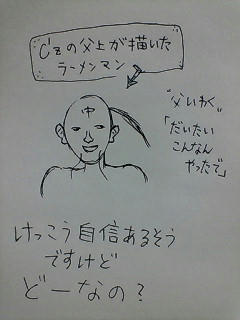 C'zの父上が描いた
ラーメンマン
中
"父いわく"
「だいたい
こんなん
やったで」
けっこう自信あるそう
ですけど
どーなの?